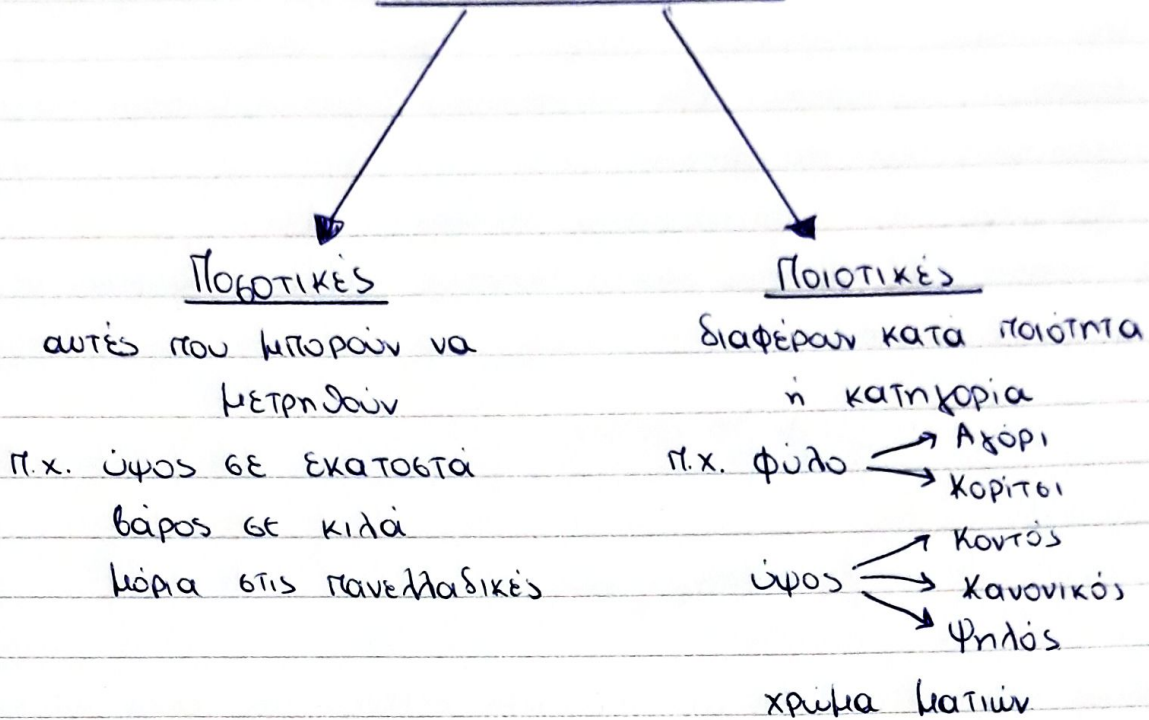 Ποσοτικές
αυτές που μπορούν να
μετρηθούν
π.χ. ύψος σε εκατοστά
βάρος σε κιλά
μόρια στις πανελλαδικές
Ποιοτικές
διαφέρουν κατά ποιότητα
ή κατηγορία
π.χ. φύλο
Αγόρι
Κορίτσι
ύψος
Κοντός
Κανονικός
Ψηλός
χρώμα ματιών